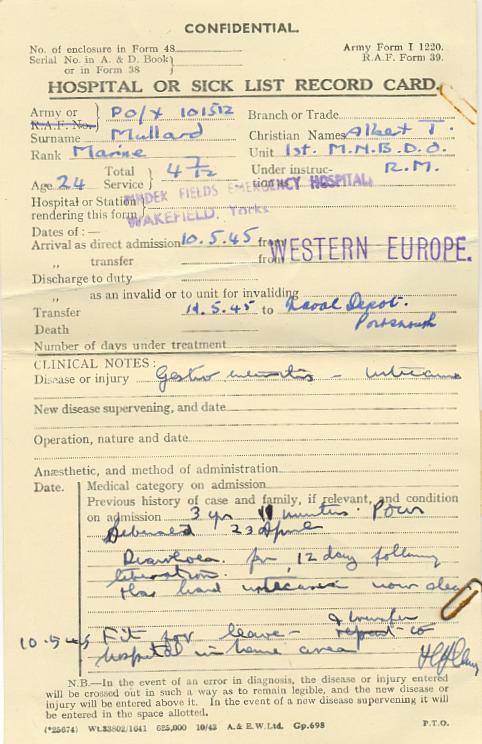 CONFIDENTIAL.
No. of enclosure in Form 48
Serial No. in A. & D. Book
or in Form 38
Army Form I 1220.
R.A.F. Form 39.
HOSPITAL OR SICK LIST RECORD CARD.
Army or R.A.F. No. Po/x 101512 Branch or Trade
Surname Mullard Christian Names Albert T.
Rank Marine Unit 1st. M.N.B.D.O.
Age 24 Total Service 4 7/12 Under instruction R.M.
Hospital or Station rendering this form PINDER FIELDS EMERGENCY HOSPITAL,
WAKEFIELD, Yorks
Dates of :—
Arrival as direct admission 10.5.45 from WESTERN EUROPE.
„ transfer from
Discharge to duty
„ as an invalid or to unit for invaliding
Transfer 11.5.45 to Naval Depot.
Portsmouth
Death
Number of days under treatment
CLINICAL NOTES :
Disease or injury Gastro enteritis – urticaria
New disease supervening, and date
Operation, nature and date
Anæsthetic, and method of administration
Date. Medical category on admission
Previous history of case and family, if relevant, and condition
on admission 3 yr 11 months. POW
23 April
Diarrhoea for 12 days following
liberation.
Has had urticaria now clear
10.5.45 Fit for leave – & transfer
report to
hospital in home area
N.B.—In the event of an error in diagnosis, the disease or injury entered
will be crossed out in such a way as to remain legible, and the new disease or
injury will be entered above it. In the event of a new disease supervening it will
be entered in the space allotted.
(*25674) Wt.33802/1641 625,000 10/43 A. & E.W.Ltd. Gp.698 P.T.O.